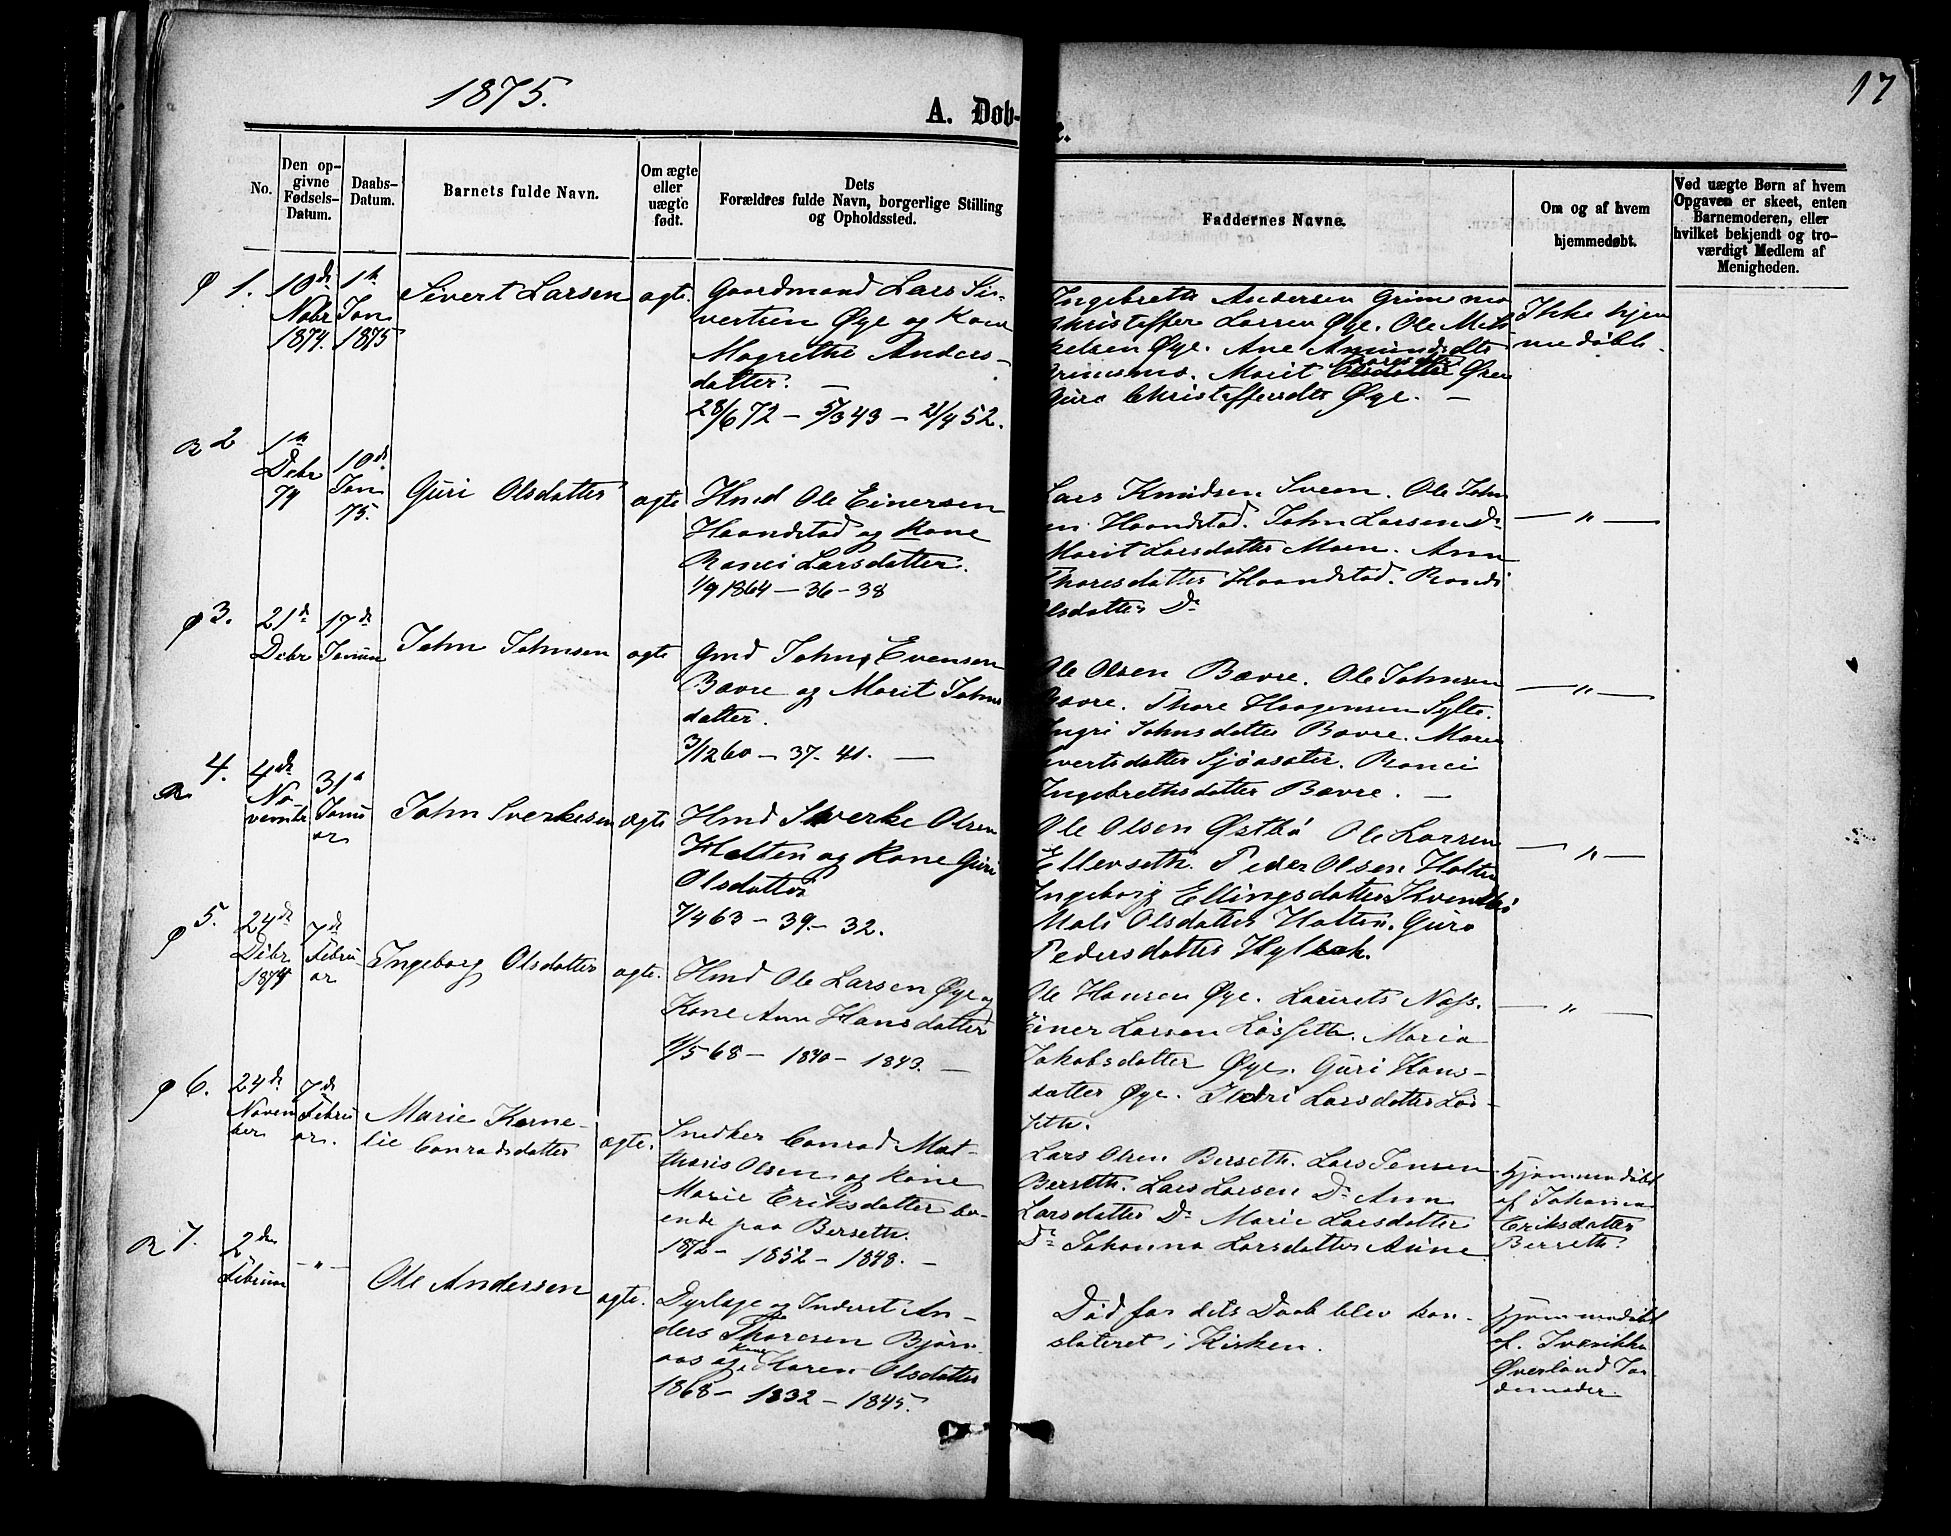 1875.
17
A. Døb-
te.
No.
Den op-
givne
Fødsels-
Datum.
Daabs-
Datum.
Barnets fulde Navn.
Om ægte
eller
uægte
født.
Dets
Forældres fulde Navn, borgerlige Stilling
og Opholdssted.
Faddernes Navne.
Om og af hvem
hjemmedøbt.
Ved uægte Børn af hvem
Opgaven er skeet, enten
Barnemoderen, eller
hvilket bekjendt og tro-
værdigt Medlem af
Menigheden.
1.
10de
Nobr
1874.
1ste
Jan
1875
Sivert Larsen
ægte.
Gaardmand Lars Si-
vertsen Øye og Kone
Magrethe Anders-
datter. —
28/6 72 — 5/3 43 — 21/4 52.
Ingebreth Andersen Grimsmo
Christoffer Larsen Øye. Ole Mik
kelsen Øye. Ane Amundsdtr
Grimsmo. Marit Øren
Guro Christoffersdtr Øye. —
Ikke hjem
medøbt.
2
1ste
Debr
74
10de
Jan
75.
Guri Olsdatter
ægte
Hmd Ole Einersen
Haandstad og Kone
Ranei Larsdatter.
1/9 1864 — 36 — 38
Lars Knudsen Sveen. Ole John
en Haandstad. John Larsen Do
Marit Larsdatter Moen. Ann
Thoresdatter Haandstad. Randi
Olsdatter Do
— " —
3.
21de
Debr
17de
Januar
John Johnsen
ægte
Gmd John Evensen
Bævre og Marit Johns
datter.
3/12 60 — 37 - 41. —
Ole Olsen Bævre. Ole Johnsen
Bævre. Thore Haagensen Sylte.
Ingri Johnsdatter Bævre. Marie
Sivertsdatter Sjøasæter. Ranei
Ingebrethsdatter Bævre. —
— " —
4.
4de
No-
vembr
31te
Janu
ar
John Sverkesen
ægte
Hmd Sverke Olsen
Holten og Kone Guri
Olsdatter
7/4 63 — 39 — 32.
Ole Olsen Østbø Ole Larsen
Ellevseth. Peder Olsen Holten
Ingeborg Ellingsdatter Kvendbø
Mali Olsdatter Holten. Guro
Pedersdatter
— " —
5.
24de
Debr
1874
7de
Febru
ar
Ingeborg Olsdatter
ægte.
Hmd Ole Larsen Øye og
Kone Ann Hansdatter
/5 68 — 1840 — 1843. —
Ole Hansen Øye. Laurits Næss.
Einer Larsen Løsseth. Maria
Jakobsdatter Øye. Guri Hans-
datter Øye. Larsdatter Løs-
seth.
— " —
6.
24de
Novem
ber
7de
Febru
ar.
Marie Korne-
lie Conradsdatter
ægte.
Snedker Conrad Mat-
thæus Olsen og Kone
Marie Eriksdatter bo-
ende paa Berseth.
1872 — 1852 — 1848. —
Lars Olsen Berseth. Lars Jensen
Berseth. Lars Larsen Do Ann
Larsdatter Do Marie Larsdatter
Do Johanna Larsdatter Aune
Hjemmedøbt
af Johanna
Eriksdatter
Berseth.
7.
2den
Februar
— " —
Ole Andersen
ægte.
Dyrlæge og Inderst An-
ders Thoresen Bjørn
aas og Kone Karen Olsdatter
1868 — 1832 — 1845.
Død før dets Daab blev kon-
stateret i Kirken.
Hjemmedøbt
af
Øverland Jor
demoder.